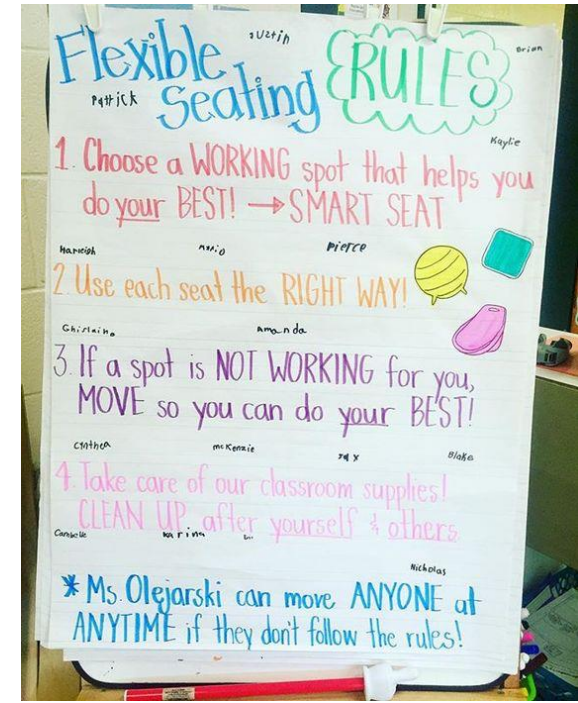 Flexible Justin RULES Brian
Patrick Seating
Kaylie
1. Choose a WORKING spot that helps you
do your BEST! → SMART SEAT
Mario Pierce
2 Use each seat the RIGHT WAY!
Amanda
3. If a spot is NOT WORKING for you,
MOVE so you can do your BEST!
McKenzie Blake
4. Take care of our classroom supplies!
CLEAN UP after yourself & others.
Karina
Nicholas
* Ms. Olejarski can move ANYONE at
ANYTIME if they don't follow the rules!